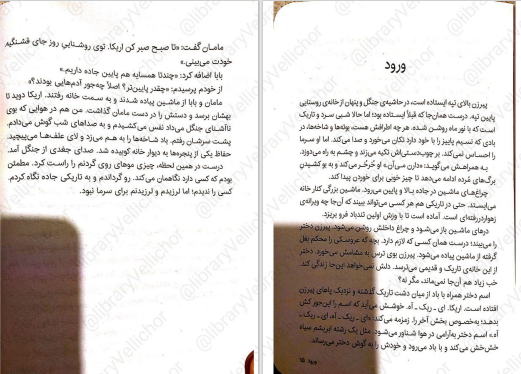 ورود
پیرزن بالای تپه ایستاده است، در حاشیه‌ی جنگل و پنهان از خانه‌ی روستایی
پایین تپه. درست همان‌جا که قبلاً ایستاده بود؛ اما حالا شبی سرد و تاریک
است که با نور ماه روشن شده. هر چه اطرافش هست، بوته‌ها و شاخه‌ها، در
بادی که نسیم پاییز را با خود دارد تکان می‌خورد و صدا می‌کند. اما او سرما
را احساس نمی‌کند. بر چوب‌دستی‌اش تکیه می‌زند و چشم به راه می‌دوزد.
به همراهش می‌گوید: «دارن میـ‌آن.» او خُرخُر می‌کند و به بو کشیدنِ
برگ‌های مُرده ادامه می‌دهد تا چیز خوبی برای خوردن پیدا کند.
چراغ‌های ماشین در جاده بالا و پایین می‌رود. ماشین بزرگی کنار خانه
می‌ایستد. حتی در تاریکی هم هر کسی می‌تواند ببیند که آن‌جا چه ویرانه‌ی
زهواردررفته‌ای است. آماده است تا با وزش اولین تندباد فرو بریزد.
درهای ماشین باز می‌شود و چراغ داخلش روشن می‌شود. پیرزن دختر
را می‌بیند؛ درست همان کسی که لازم دارد. بچه که عروسکی را محکم بغل
گرفته از ماشین پیاده می‌شود. پیرزن بوی ترس به مشامش می‌خورد. دختر
از این خانه‌ی تاریک و قدیمی می‌ترسد. دلش نمی‌خواهد این‌جا زندگی کند.
خب زیاد هم آن‌جا نمی‌ماند، مگر نه؟
اسم دختر همراه با باد از میان دشت تاریک گذشته و نزدیک پاهای پیرزن
افتاده است. اریکا. ای ـ ریک ـ آه. خوشش می‌آید که اسم را این‌جور کش
بدهد؛ به‌خصوص بخش آخر را. زمزمه می‌کند: «ای ـ ریک ـ آه، ای ـ ریک ـ
آه.» اسم دختر به‌آرامی در هوا شناور می‌شود. مثل یک رشته ابریشم سیاه
خش‌خش می‌کند و با باد می‌رود و خودش را به گوش دختر می‌رساند.
ورود ۱۵
مامان گفت: «تا صبح صبر کن اریکا. توی روشنایی روز جای قشنگی
خودت می‌بینی.»
بابا اضافه کرد: «چندتا همسایه هم پایین جاده داریم.»
از خودم پرسیدم: «چقدر پایین‌تر؟ اصلاً چه‌جور آدم‌هایی بودند؟»
مامان و بابا از ماشین پیاده شدند و به سمت خانه رفتند. اریکا دوید تا
بهشان برسد و دستش را در دست مامان گذاشت. من هم در هوایی که بوی
ناآشنای جنگل می‌داد نفس می‌کشیدم و به صداهای شب گوش می‌دادم.
پشت سرشان رفتم. باد شاخه‌ها را به هم می‌زد و لای علف‌ها می‌پیچید.
حفاظ یکی از پنجره‌ها به دیوار خانه کوبیده شد. صدای جغدی از جنگل آمد.
درست در همین لحظه، چیزی موهای روی گردنم را راست کرد. مطمئن
بودم که کسی دارد نگاهمان می‌کند. رو گرداندم و به تاریکی جاده نگاه کردم.
کسی را ندیدم؛ اما لرزیدم و لرزیدنم برای سرما نبود.
@libraryVelvichor